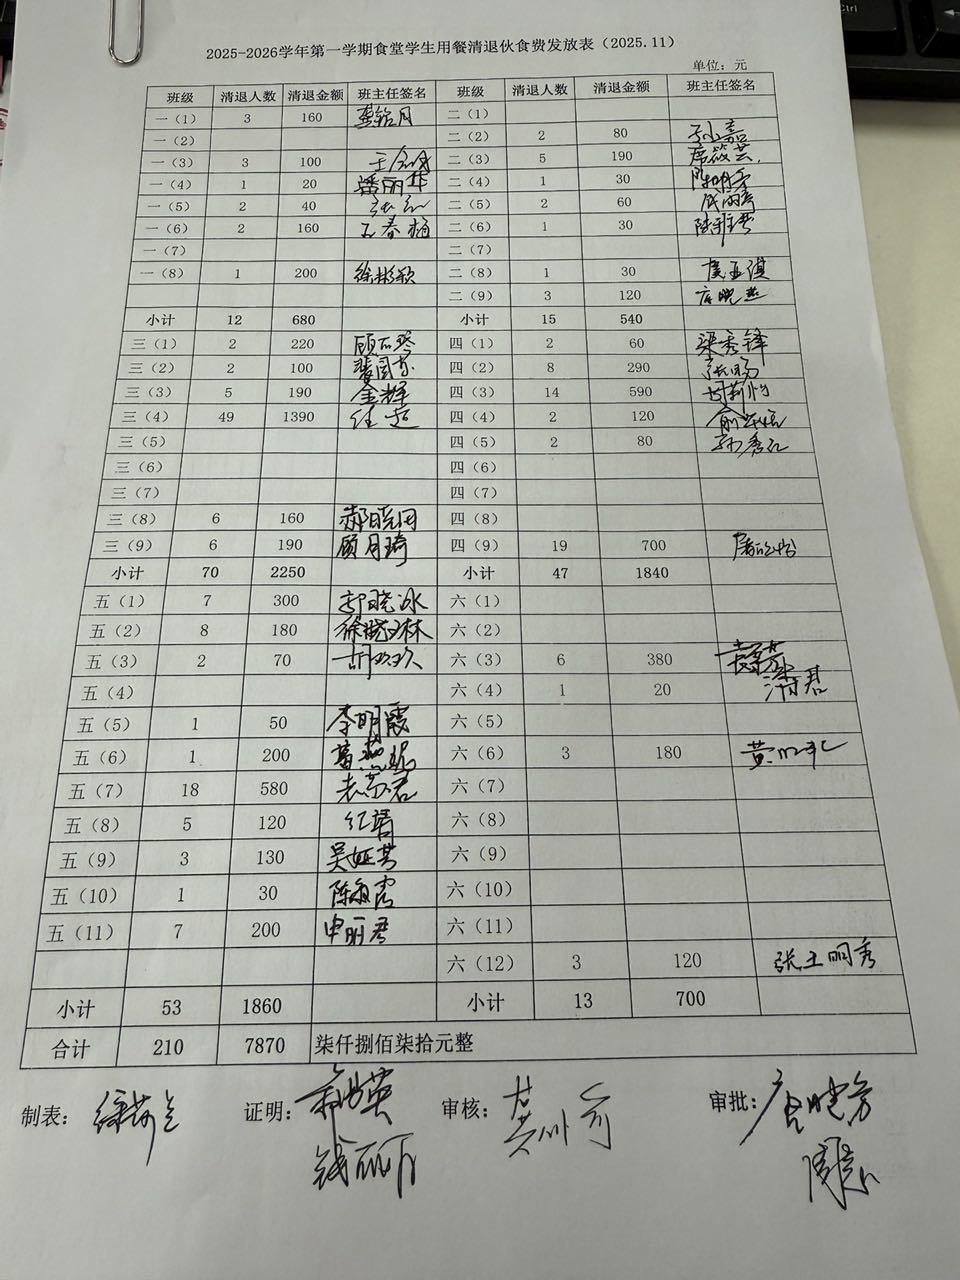 2025-2026学年第一学期食堂学生用餐清退伙食费发放表（2025.11）
单位：元
班级 清退人数 清退金额 班主任签名 班级 清退人数 清退金额 班主任签名
一（1） 3 160 二（1）
一（2） 二（2） 2 80
一（3） 3 100 二（3） 5 190
一（4） 1 20 潘丽华 二（4） 1 30
一（5） 2 40 二（5） 2 60
一（6） 2 160 王春梅 二（6） 1 30
一（7） 二（7）
一（8） 1 200 二（8） 1 30
二（9） 3 120
小计 12 680 小计 15 540
三（1） 2 220 四（1） 2 60 梁秀锋
三（2） 2 100 四（2） 8 290
三（3） 5 190 金辉 四（3） 14 590
三（4） 49 1390 任超 四（4） 2 120
三（5） 四（5） 2 80
三（6） 四（6）
三（7） 四（7）
三（8） 6 160 四（8）
三（9） 6 190 顾月琦 四（9） 19 700
小计 70 2250 小计 47 1840
五（1） 7 300 郭晓冰 六（1）
五（2） 8 180 徐晓林 六（2）
五（3） 2 70 胡玖玖 六（3） 6 380
五（4） 六（4） 1 20
五（5） 1 50 李明霞 六（5）
五（6） 1 200 六（6） 3 180
五（7） 18 580 六（7）
五（8） 5 120 六（8）
五（9） 3 130 吴延芳 六（9）
五（10） 1 30 六（10）
五（11） 7 200 申丽君 六（11）
六（12） 3 120 张王明秀
小计 53 1860 小计 13 700
合计 210 7870 柒仟捌佰柒拾元整
制表： 证明： 审核： 审批：